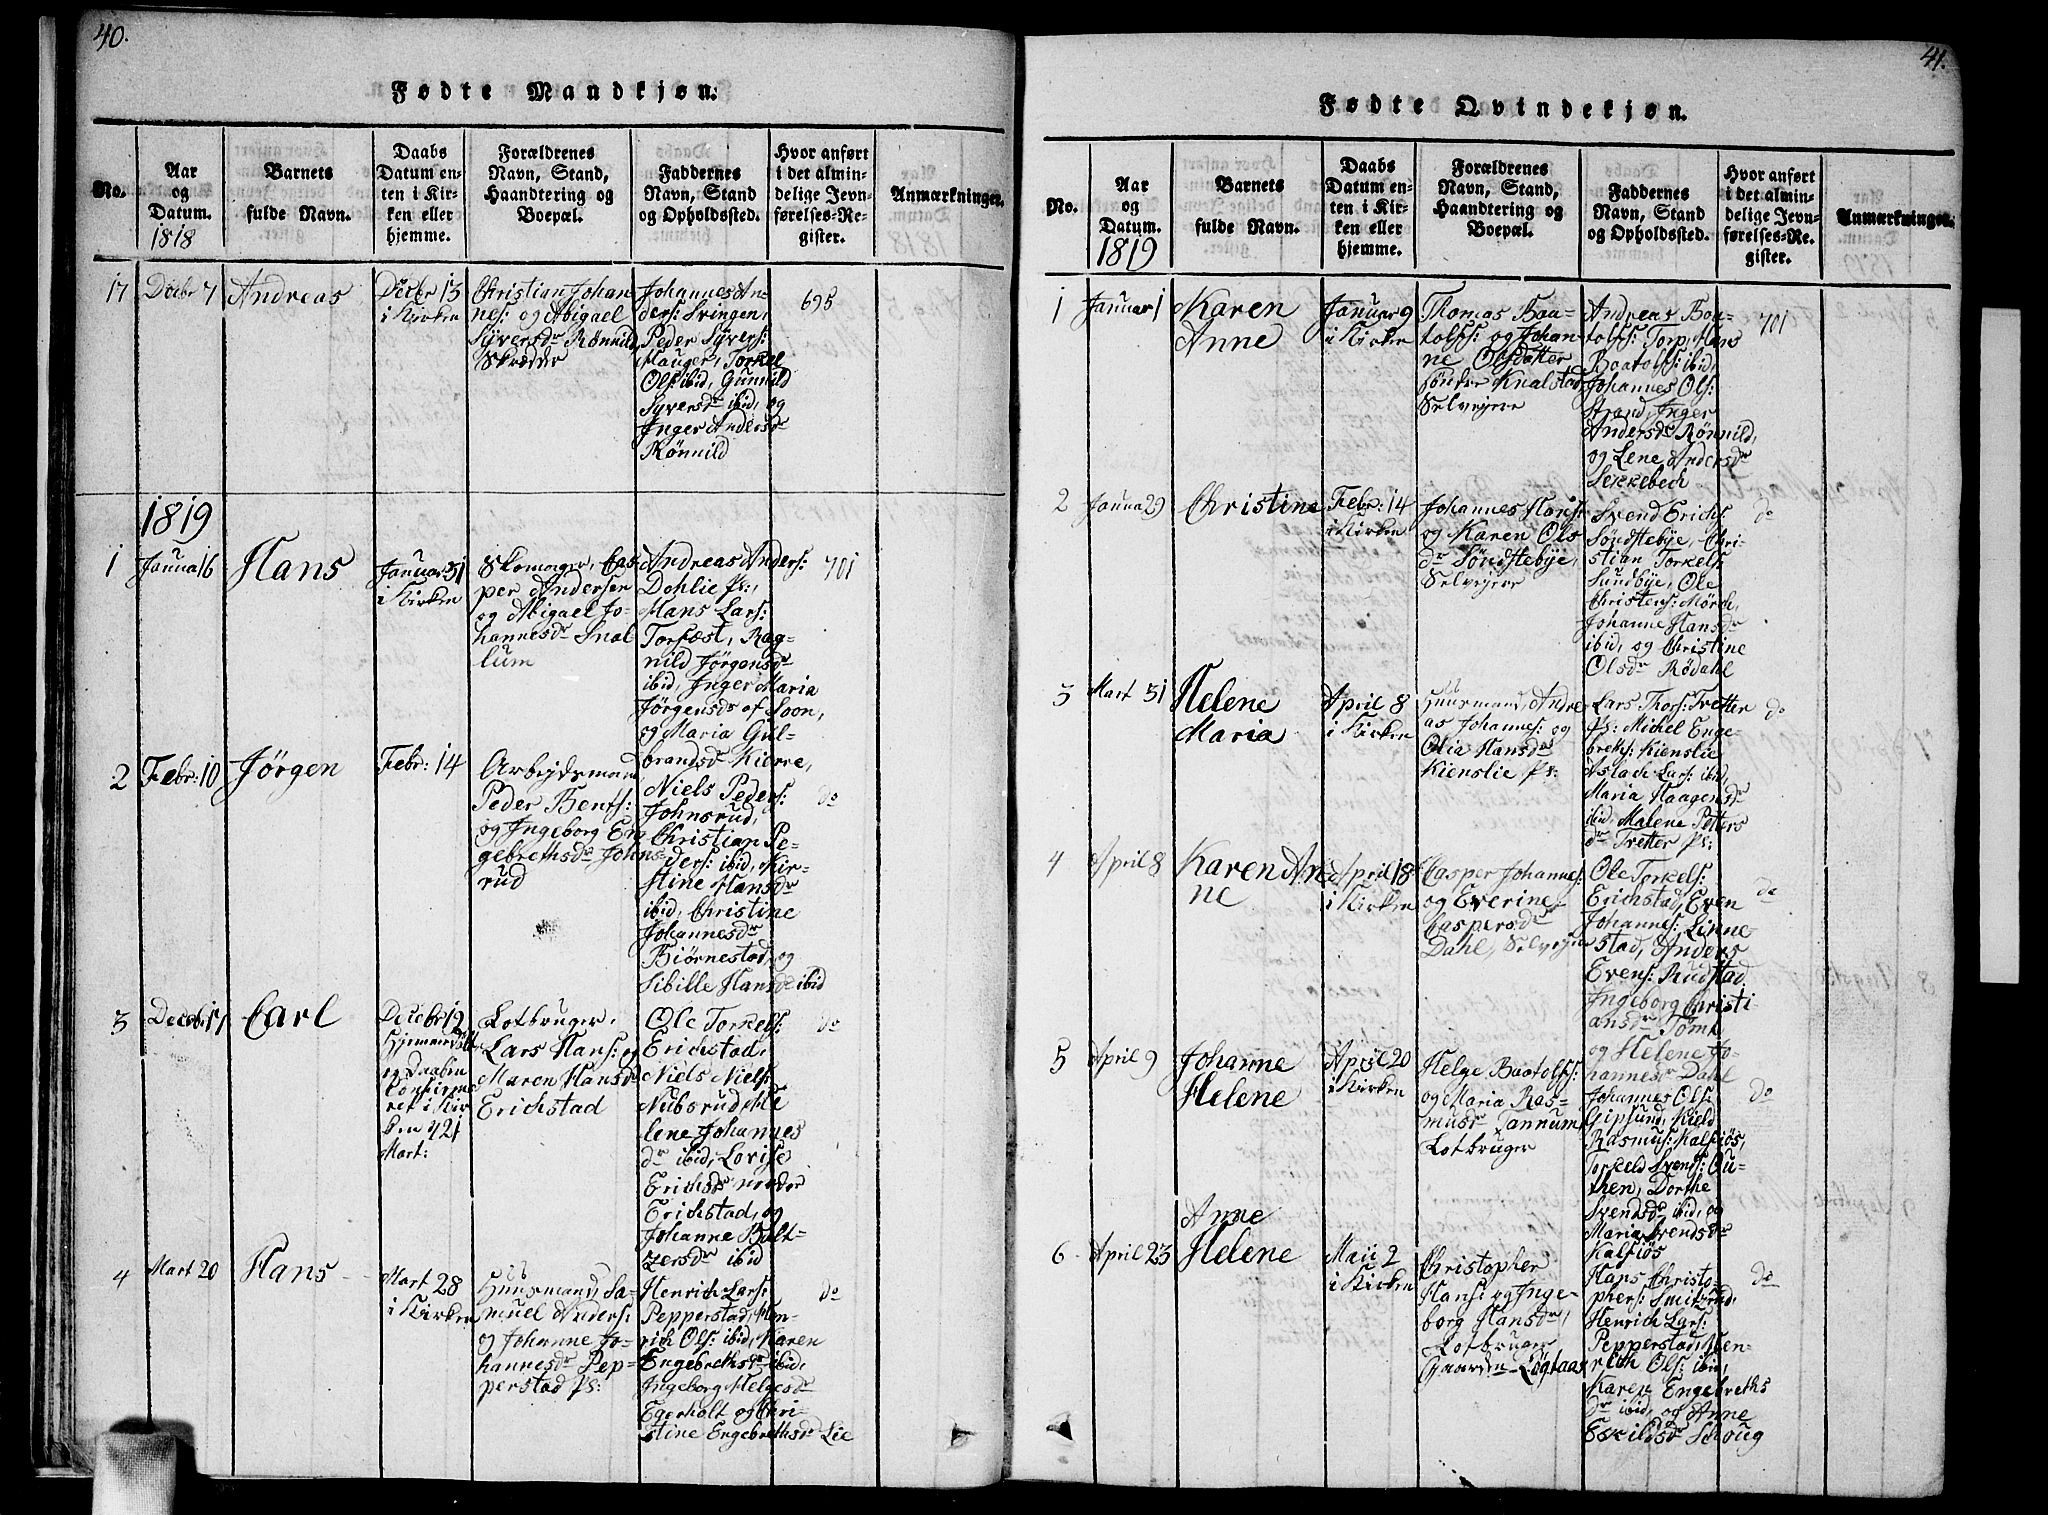 40.
Fødte Mandkjøn.
No.
Aar
og
Datum.
1818
Barnets
fulde Navn.
Daabs
Datum en-
ten i Kir-
ken eller
hjemme.
Forældrenes
Navn, Stand,
Haandtering og
Boepæl.
Faddernes
Navn, Stand
og Opholdssted.
Hvor anført
i det almin-
delige Jevn-
førelses-Re-
gister.
Anmærkninger.
17
Decbr 7
Andreas
Decbr 13
i Kirken
Christian Johan
nes: og Abigael
Syversdr Rönnild
Skrædder
Johannes An-
ders: Svingen,
Peder Syvers:
Mauger, Torkel
Ols: ibid, Gunnild
Syversdr ibid, og
Inger Andersdr
Rönnild
695
1819
1
Janua 16
Hans
Januar 31
i Kirken
Skomager, Cas-
per Andersen
og Abigael Jo-
hannesdr Snal-
lum
Andreas Anders:
Dehlie Ps:,
Hans Lars:
Torfæst, Rag-
nild Jörgensdr
ibid, Inger Maria
Jörgensdr af Soon,
og Maria Gul-
brandsd Kierre,
701
2
Febr: 10
Jörgen
Febr: 14
Arbejdsmand
Peder Bents:
og Ingeborg En-
gebrethsdr Johns-
rud
Niels Peders:
Johnsrud,
Christian Pe-
ders: ibid, Kir-
stine Hansdr
ibid, Christine
Johannesdr
Biörnestad, og
Sibille Hansdr ibid
do
3
Carl
Decebr 19
Hjemmedöbt
og Daaben
Confirme
ret i Kir
ken d 21
Mart:
Lotbruger,
Lars Hans: og
Maren Hansdr
Erichstad
Ole Torkels:
Erichstad,
Niels Niels:
Nubsrud, He
lene Johannes
dr ibid, Lovise
Erichsdr neder
Erichstad, og
Johanne Balt-
zersdr ibid
do
4
Mart 20
Hans
Mart 28
i Kirken
Huusmand, Sa-
muel Anders:
og Johanne Jo-
hannesdr Pep-
perstad Ps:
Henrich Lars:
Pepperstad, Hen-
rich Ols: ibid, Karen
Engebrethsdr ibid,
Ingeborg Helgesdr
Egerholt og Chri-
stine Engebrethsdr Lie
do
41.
Fødte Qvindekjøn.
No.
Aar
og
Datum.
1819
Barnets
fulde Navn.
Daabs
Datum en-
ten i Kir-
ken eller
hjemme.
Forældrenes
Navn, Stand,
Haandtering og
Boepæl.
Faddernes
Navn, Stand
og Opholdssted.
Hvor anført
i det almin-
delige Jevn-
førelses-Re-
gister.
Anmærkninger.
1
Januar 1
Karen
Anne
Januar 9
i Kirken
Thomas Baa-
tolfs: og Johan-
ne Olsdatter
sönder Knalstad
Selvejere
Andreas Baa-
tolfs: Torp, Hans
Baatolfs: ibid,
Johannes Ols:
Strand, Inger
Andersdr Rönnild,
og Lene Andersdr
Sekkebech
701
2
Janua 29
Christine
Febr: 14
i Kirken
Johannes Hans:
og Karen Ols
dr Söndstebÿe,
Selvejere
Svend Erichs:
Söndstebÿe, Chri-
stian Torkels:
Sundbÿe, Ole
Christens: Mörch,
Johanne Hansdr
ibid, og Christine
Olsdr Rödahl
do
3
Mart 31
Helene
Maria
April 8
i Kirken
Huusmand, Andre
as Johannes: og
Olia Hansdr
Kienslie Ps:
Lars Thors: Tretter
Ps: Michel Enge-
breths: Kienslie
Aslach Lars: ibid,
Maria Haagensdr
ibid, Malene Petters
dr Tretter Ps:
do
4
April 8
Karen An
ne
April 18
i Kirken
Casper Johannes:
og Everine
Caspersdr
Dahl, Selvejere
Ole Torkels:
Erichstad, Even
Johannes: Linne-
stad, Anders
Evens: Rudstad,
Ingeborg Christi-
ansdr Tomt
og Helene Jo-
hannesdr Dahl
do
5
April 9
Johanne
Helene
April 20
i Kirken
Helge Baatolfs:
og Maria Ras-
musdr Tannum,
Lotbruger
Johannes Ols:
Gipsund, Kield
Rasmus: Kalsiös,
Torkeld Svends: Ou-
then, Dorthe
Svendsdr ibid, og
Maria Svendsdr
Kalsiös
do
6
April 23
Anne
Helene
Maii 2
i Kirken
Christopher
Hans: og Inge-
borg Hansdr,
Lotbruger
Gaarden Lögtaas
Hans Christo-
phers: Smitsrud,
Henrich Lars:
Pepperstad, Hen-
rich Ols: ibid,
Karen Engebreths
dr ibid, og Anne
Eskildsdr Schoug
do